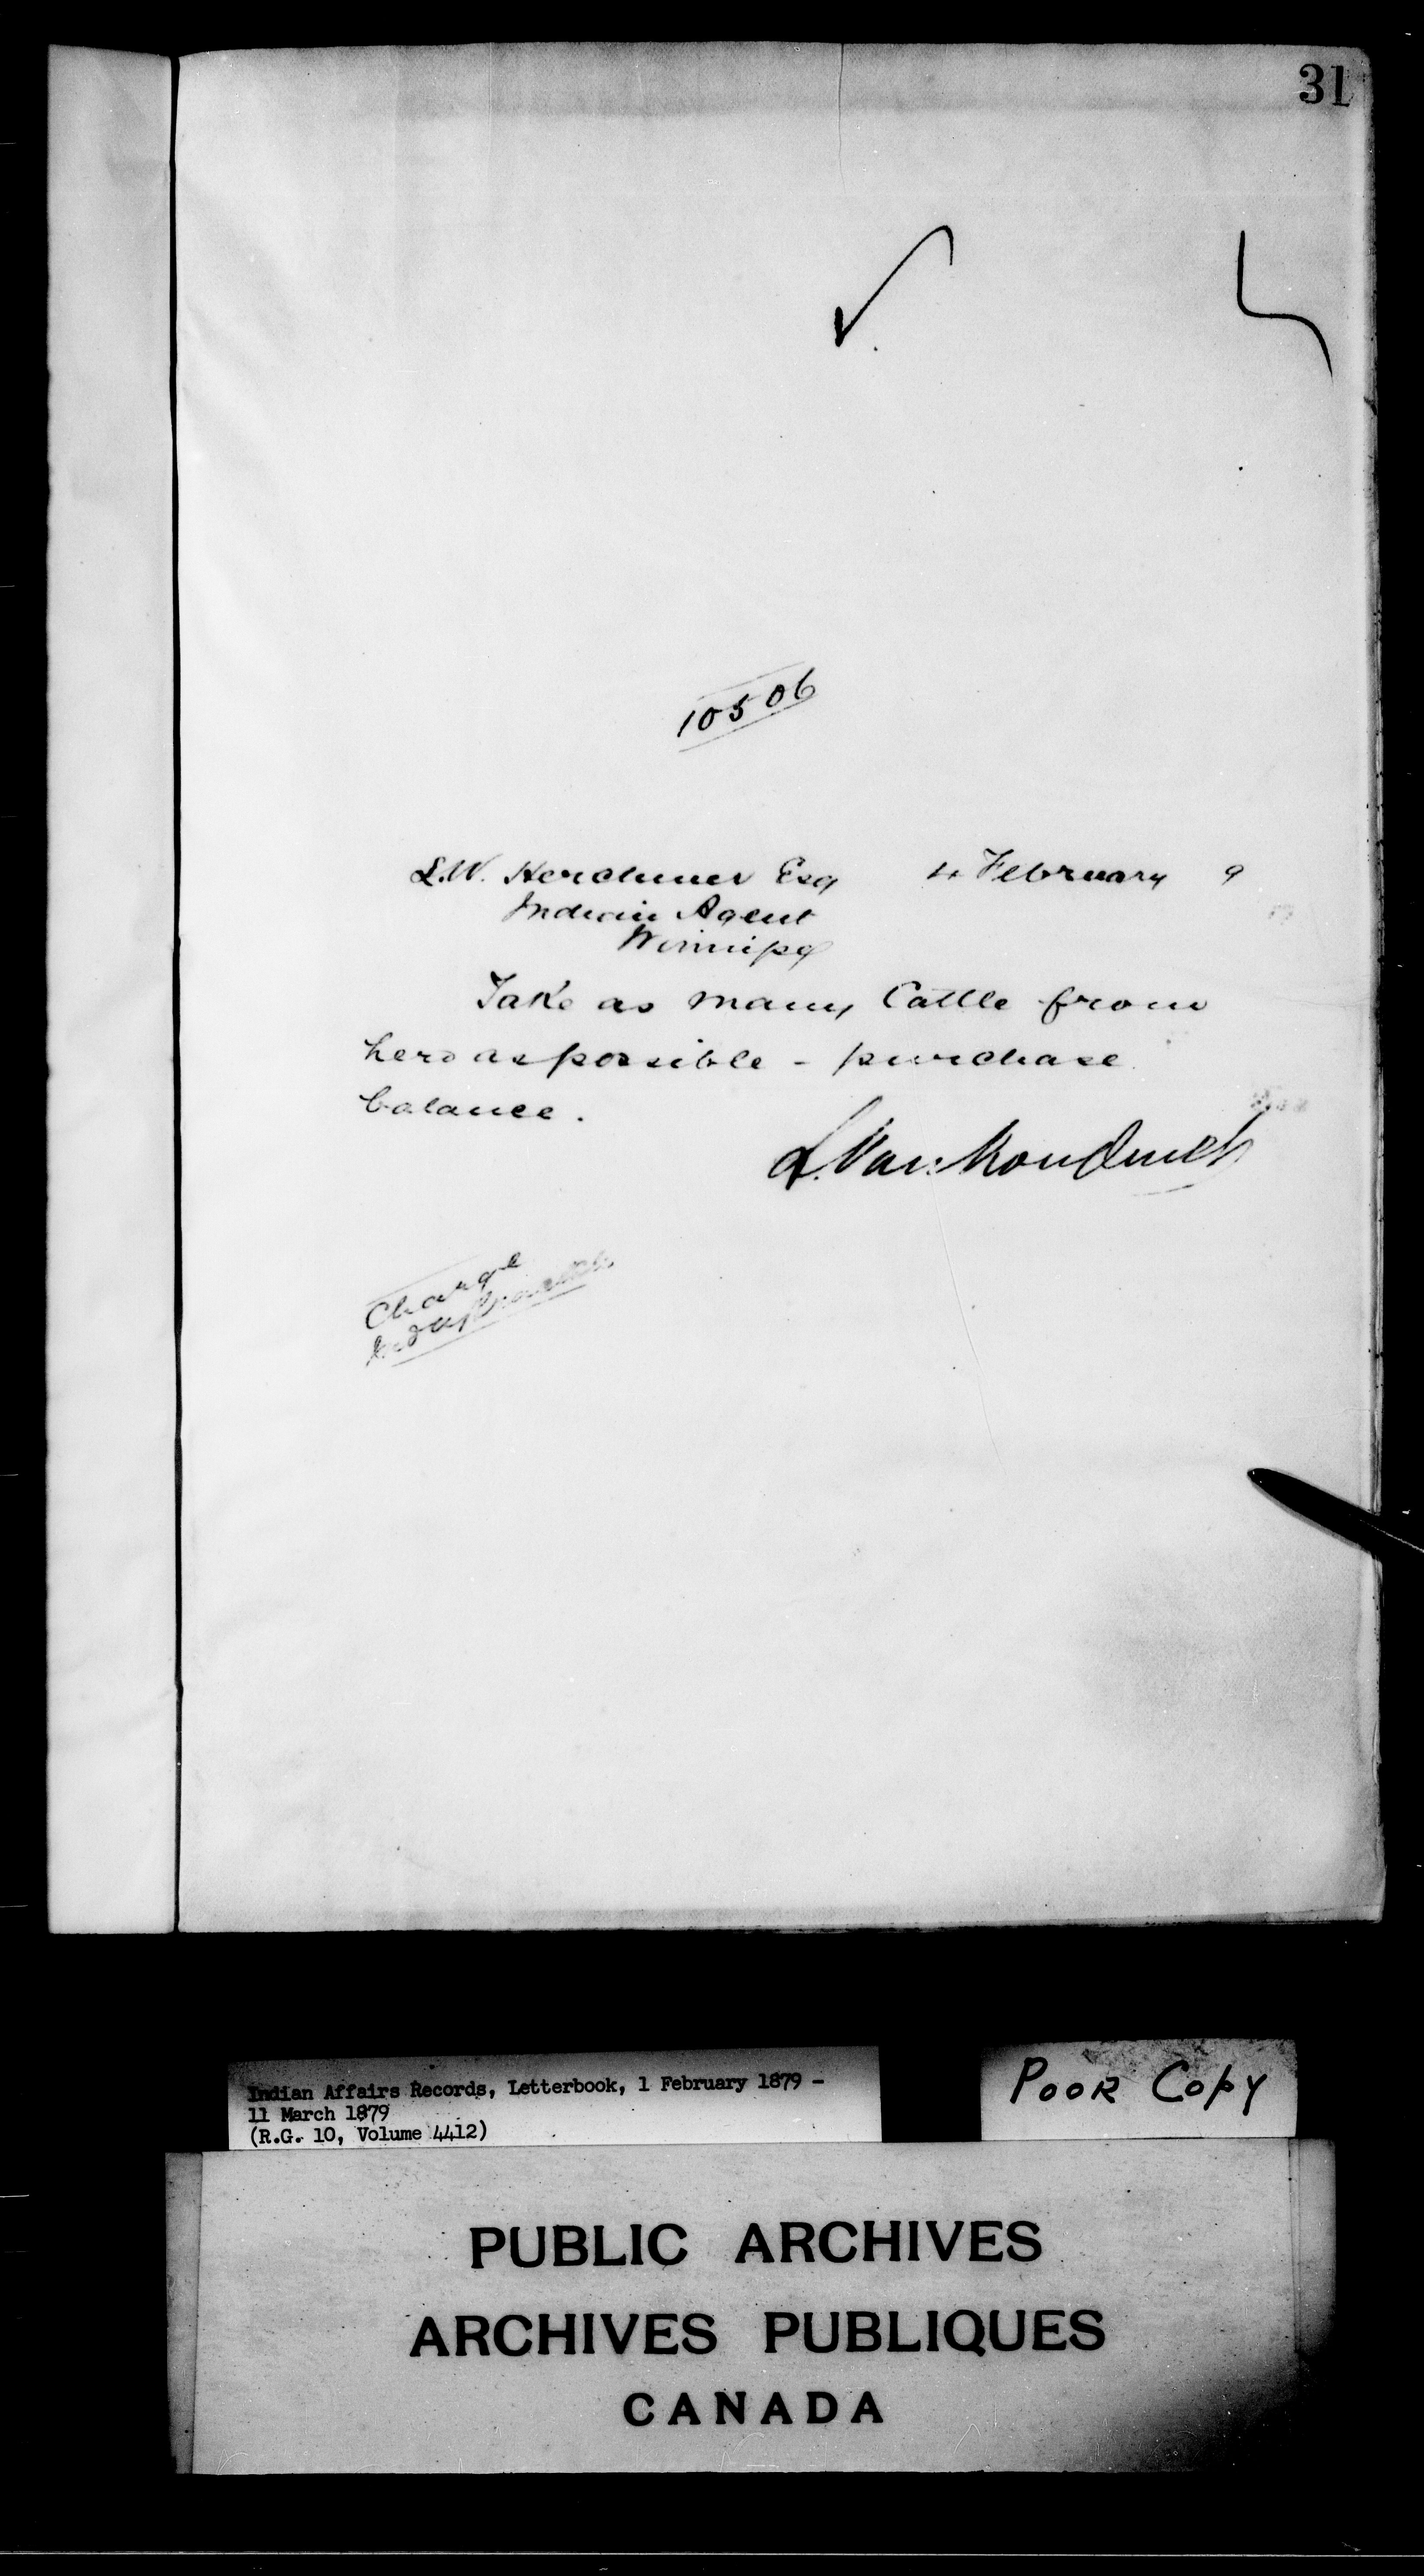 31
10506
L.W. Herchmer Esq 4 February 9
Indian Agent
Winnipeg
Take as many Cattle from
herd as possible - purchase
balance.
L. VanKoughnet
Charge
Indian Affairs Records, Letterbook, 1 February 1879 -
11 March 1879
(R.G. 10, Volume 4412)
POOR COPY
PUBLIC ARCHIVES
ARCHIVES PUBLIQUES
CANADA